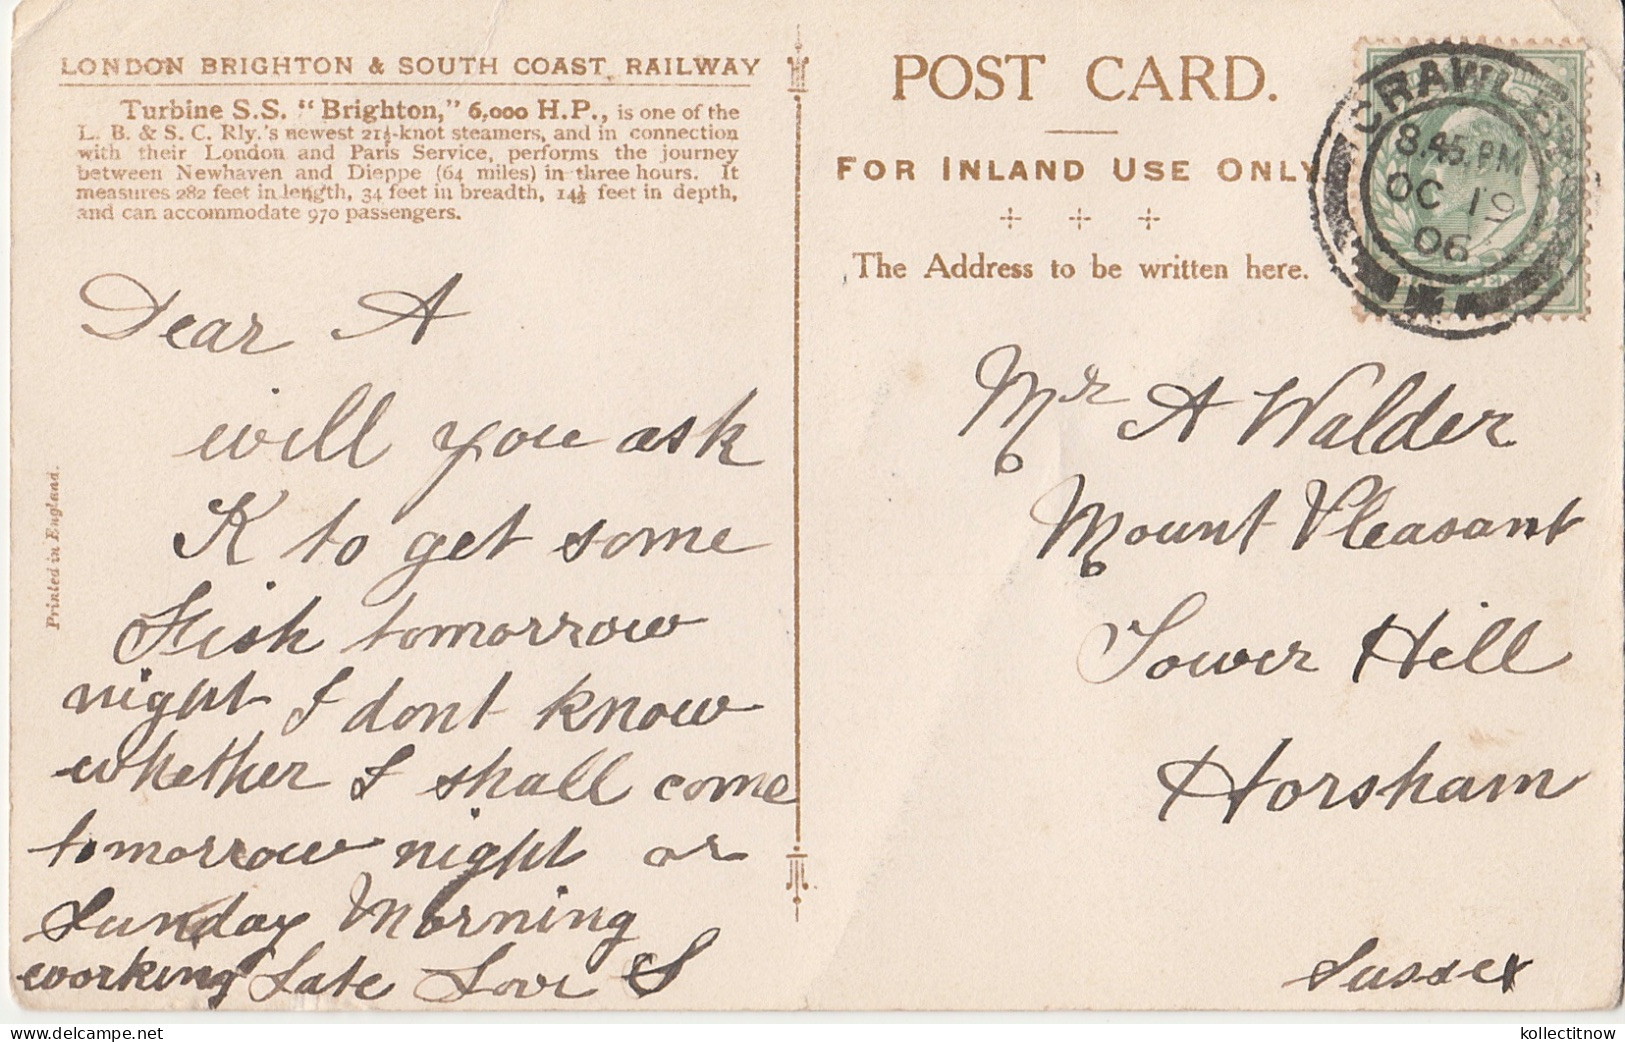 LONDON BRIGHTON & SOUTH COAST RAILWAY
Turbine S.S. "Brighton," 6,000 H.P., is one of the
L. B. & S. C. Rly.'s newest 21½-knot steamers, and in connection
with their London and Paris Service, performs the journey
between Newhaven and Dieppe (64 miles) in three hours. It
measures 282 feet in length, 34 feet in breadth, 14½ feet in depth,
and can accommodate 970 passengers.
Printed in England.
Dear A
will you ask
K to get some
Fish tomorrow
night I dont know
whether I shall come
tomorrow night or
Sunday Morning
working Late Love S
POST CARD.
FOR INLAND USE ONLY
The Address to be written here.
CRAWLEY
8.45.PM
OC 19
06
Mr A Walder
Mount Pleasant
Tower Hill
Horsham
Sussex
kollectitnow